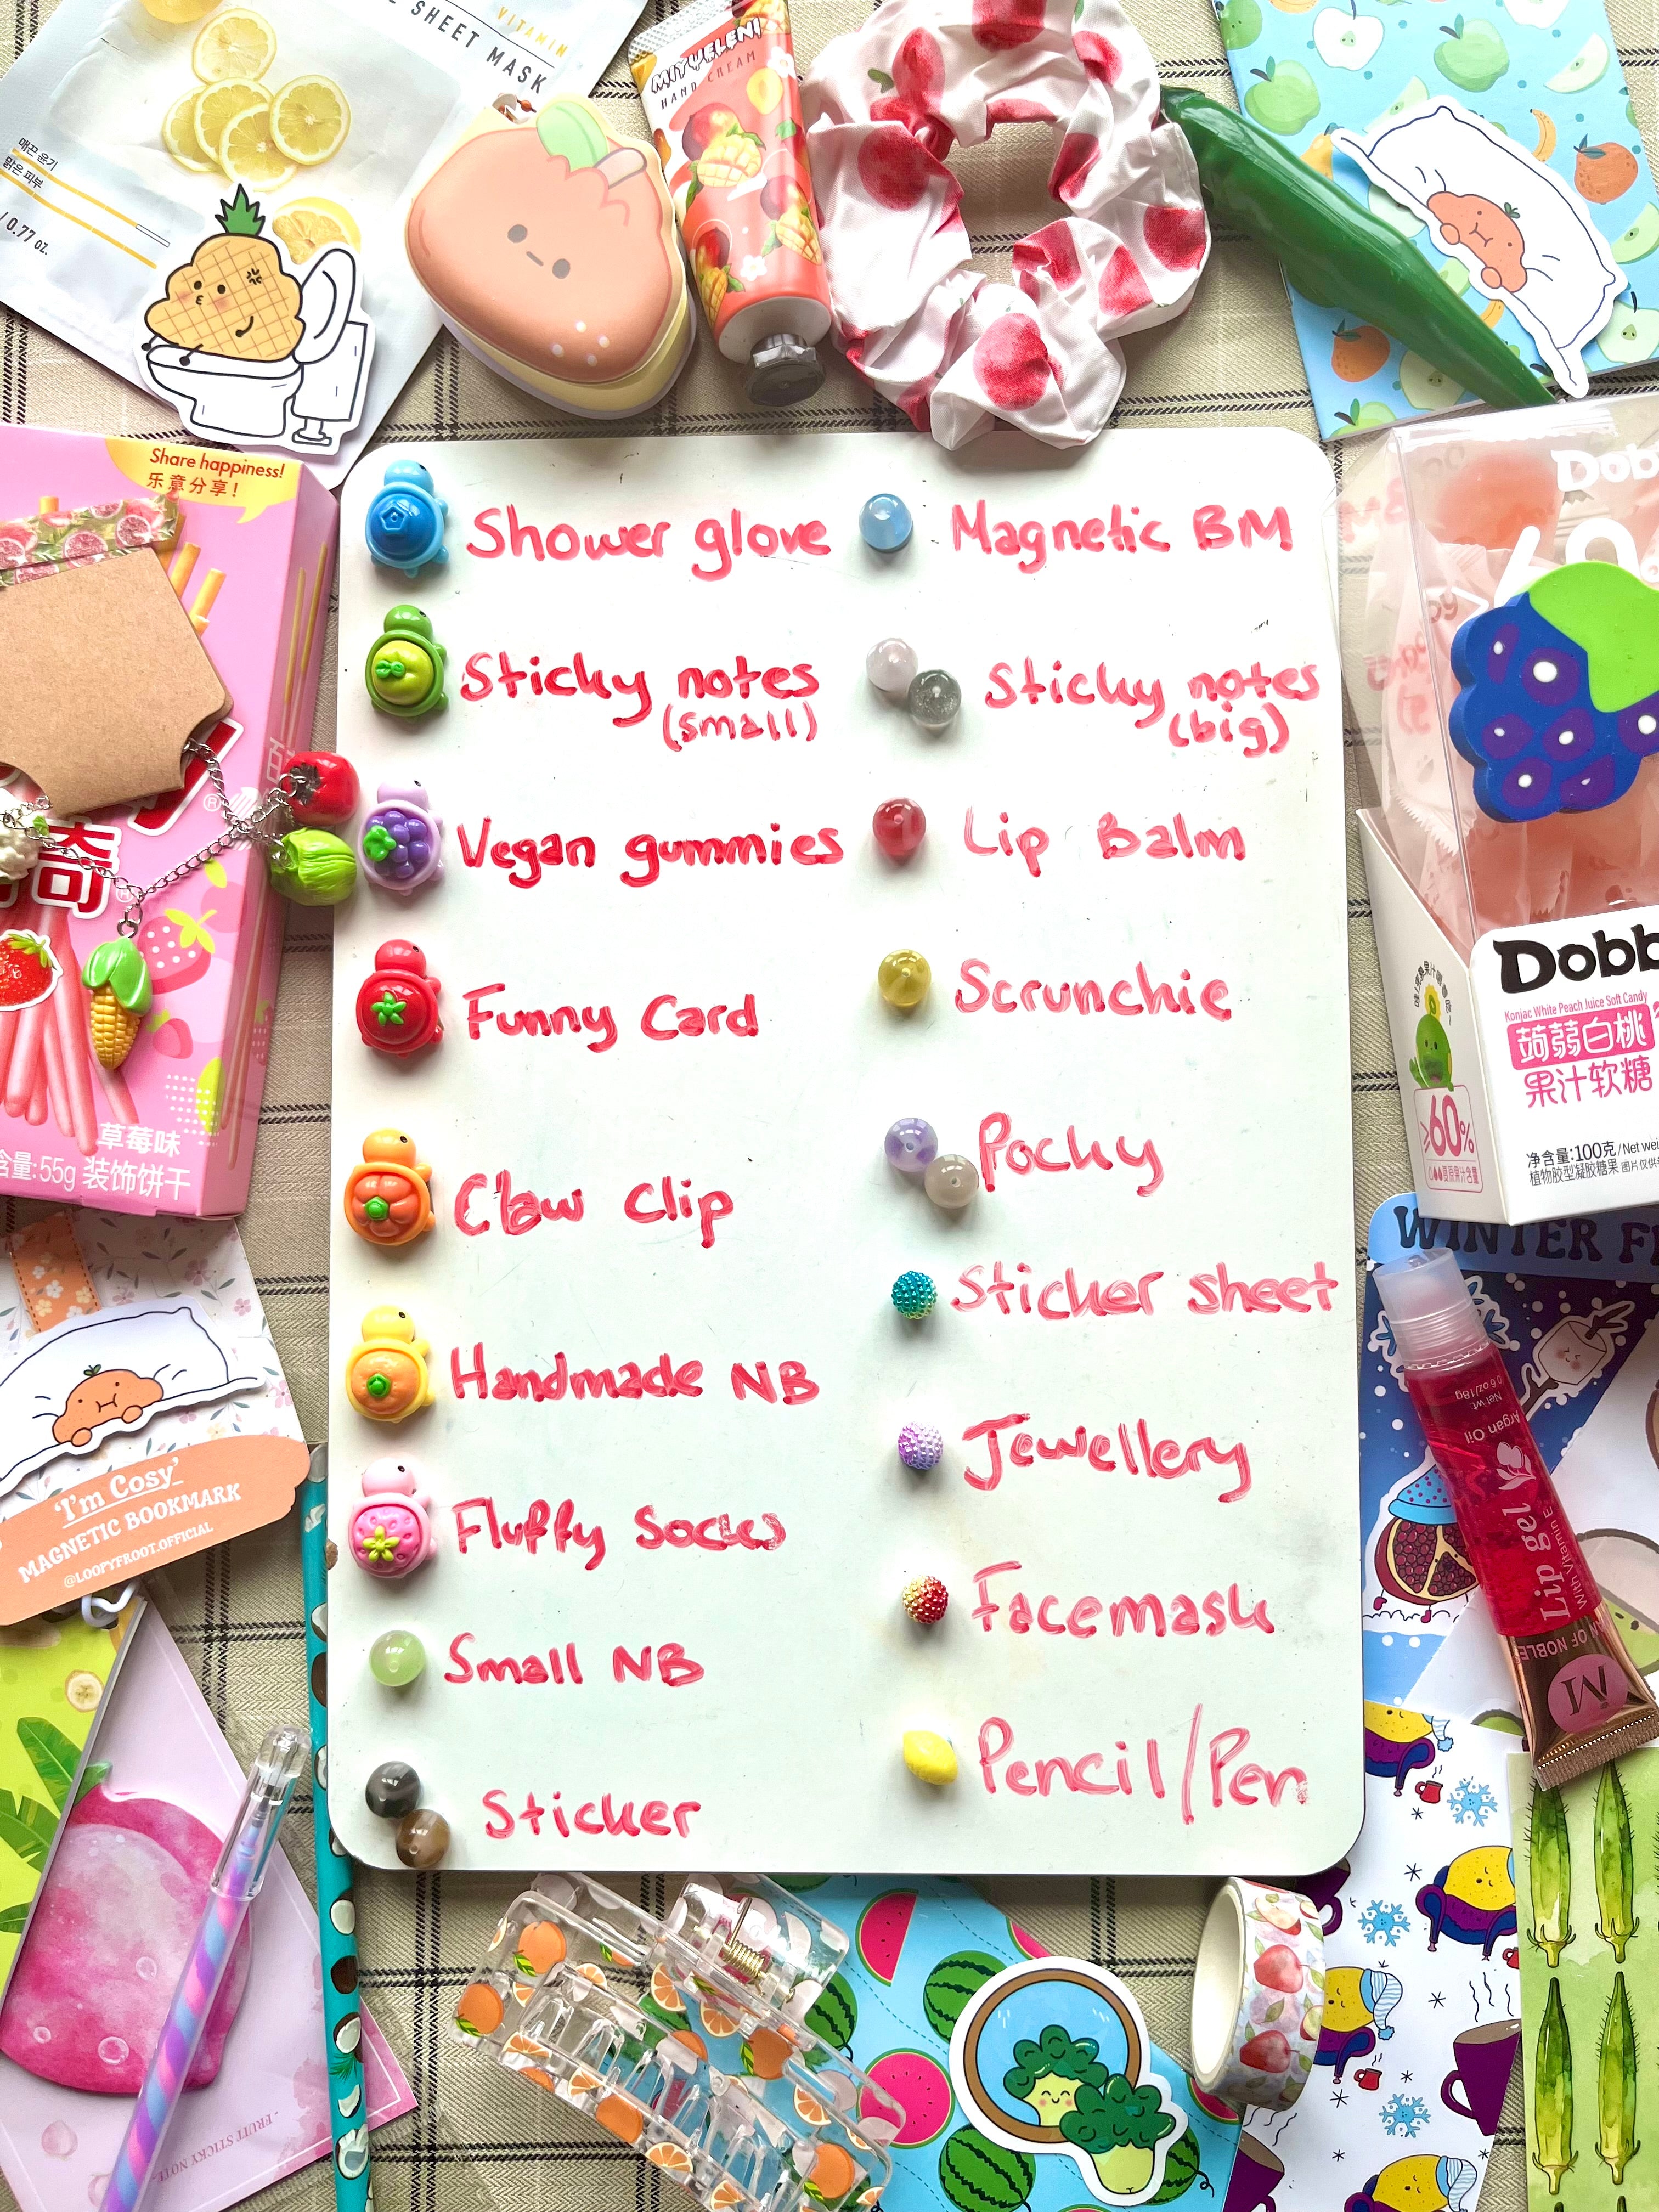 SHEET MASK
VITAMIN
매끈 윤기
맑은 피부
/ 0.77 oz.
MIYUELENI
HAND CREAM
Share happiness!
乐意分享!
奇
草莓味
含量:55g 装饰饼干
Shower glove
Sticky notes
(small)
Vegan gummies
Funny Card
Claw Clip
Handmade NB
Fluffy Socks
Small NB
Sticker
Magnetic BM
Sticky notes
(big)
Lip Balm
Scrunchie
Pocky
Sticker sheet
Jewellery
Facemask
Pencil/Pen
Konjac White Peach Juice Soft Candy
蒟蒻白桃
果汁软糖
≥60%
净含量:100克/Net wei
植物胶型凝胶糖果
WINTER
Net wt 0.6 oz/18g
Argan Oil
Lip gel
With Vitamin E
M
'I'm Cosy'
MAGNETIC BOOKMARK
@LOOPYFROOT.OFFICIAL